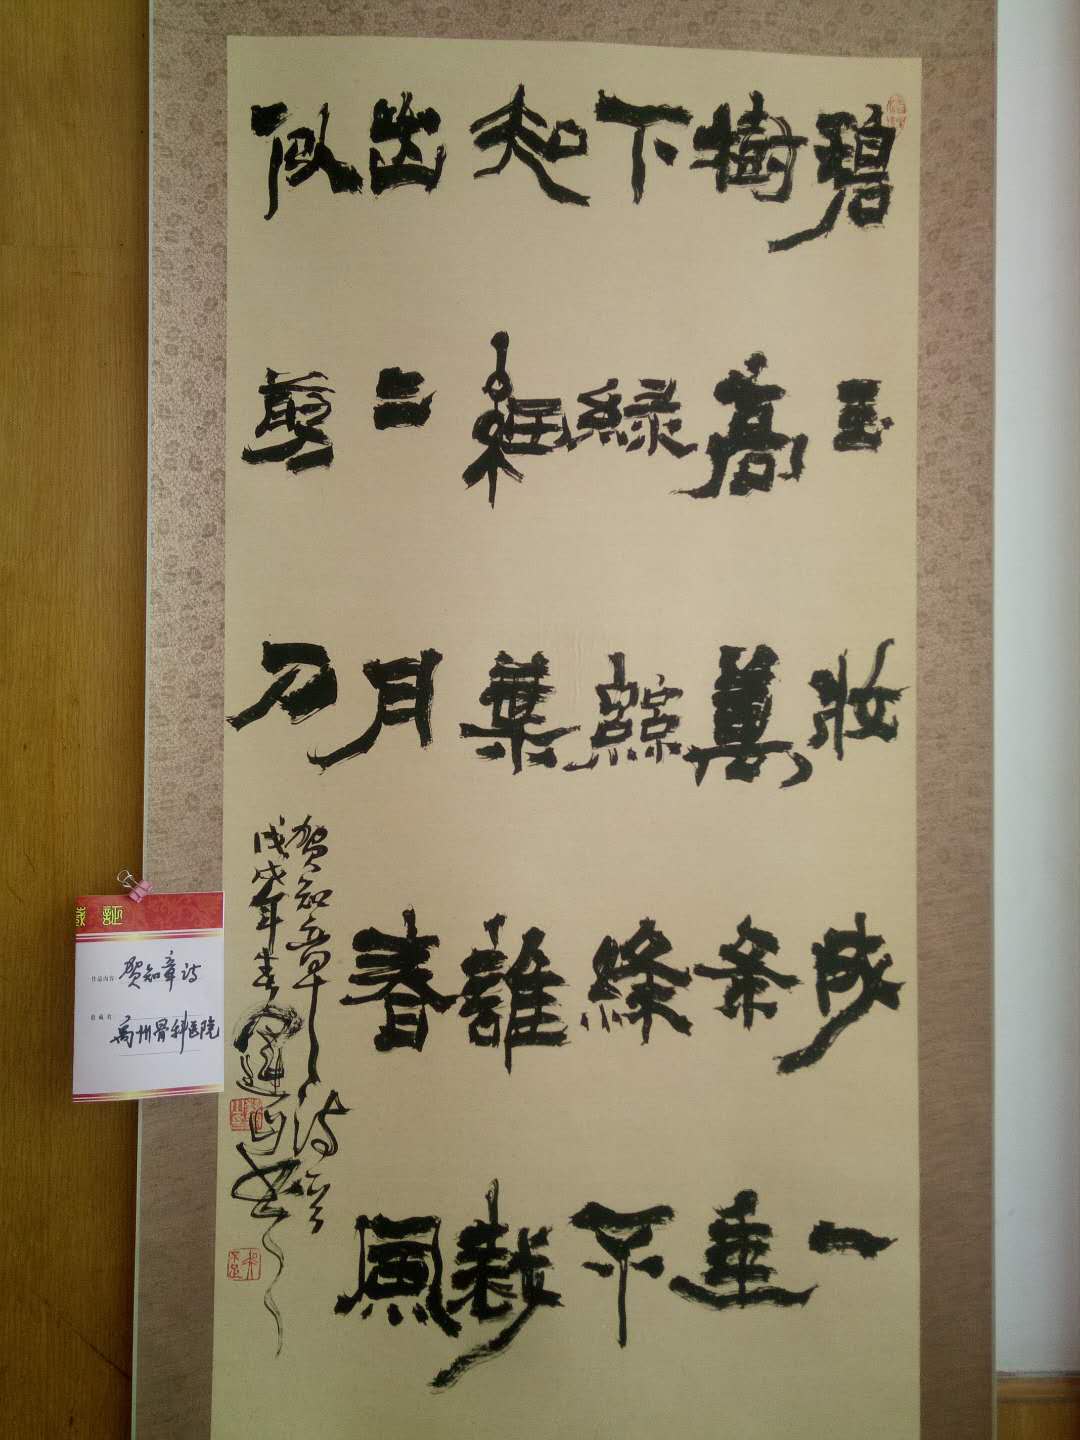 碧玉妝成一
樹高萬条垂
下綠絲絛不
知細葉誰裁
出二月春風
似剪刀
贺知章诗一首
戊戌年春
藏証
作品内容 贺知章诗
收藏者 禹州骨科医院